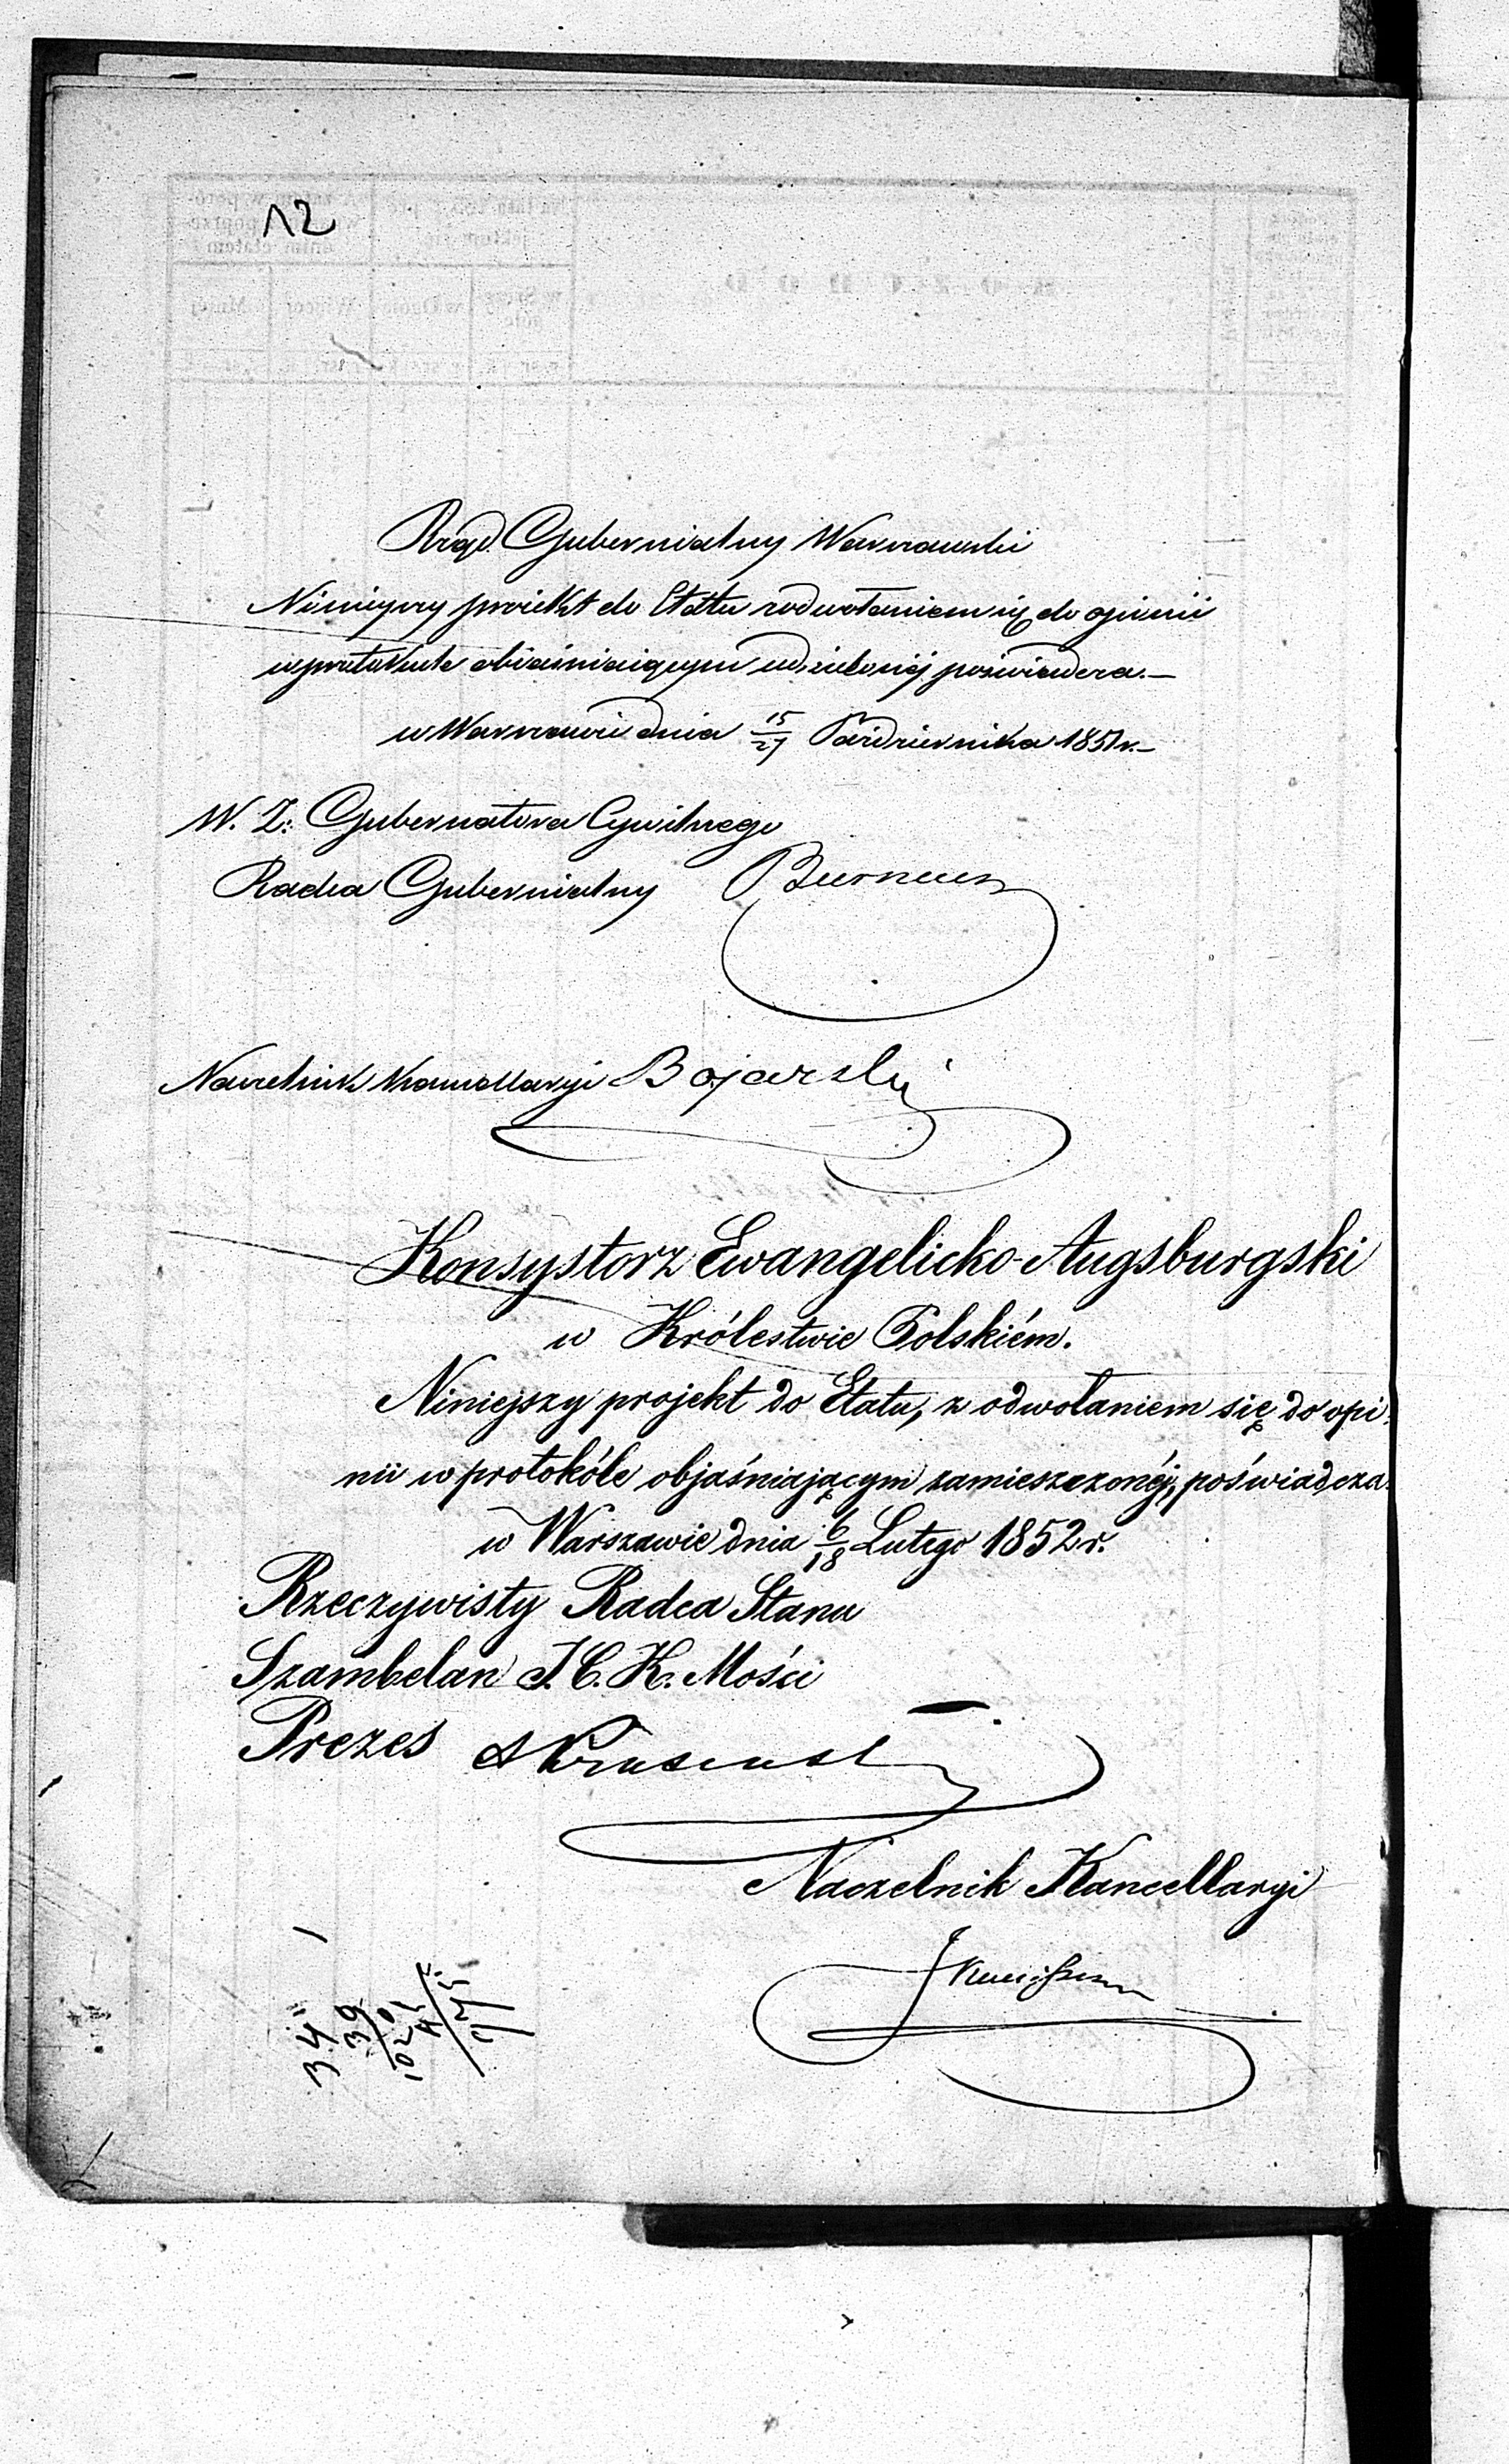 12
Rząd Gubernialny Warszawski
Niniejszy proiekt do Etatu z odwołaniem się do opinii
w protokule obiaśniaiącym udzielonéj poświadcza.—
w Warszawie dnia 15/27 Października 1851 r.—
W. Z. Gubernatora Cywilnego
Radca Gubernialny
Naczelnik Kancellaryi Bojarski
Konsystorz Ewangelicko-Augsburgski
w Królestwie Polskiém.
Niniejszy projekt do Etatu, z odwołaniem się do opi-
nii w protokóle objaśniającym zamieszczonéj, poświadcza.
w Warszawie dnia 6/18 Lutego 1852 r.
Rzeczywisty Radca Stanu
Szambelan J. C. K. Mości
Prezes
Naczelnik Kancellaryi
34
39
1020